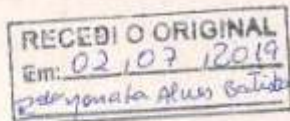 RECEBI O ORIGINAL
Em: 02 / 07 / 2019
Alves Batista